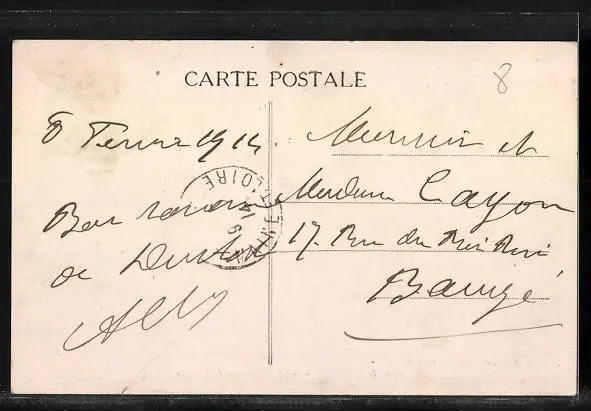 CARTE POSTALE
8
8 Fevrier 1914.
Bon souvenir
de
Monsieur et
Madame Cayon
17. Rue du Roi René
Baugé
LOIRE